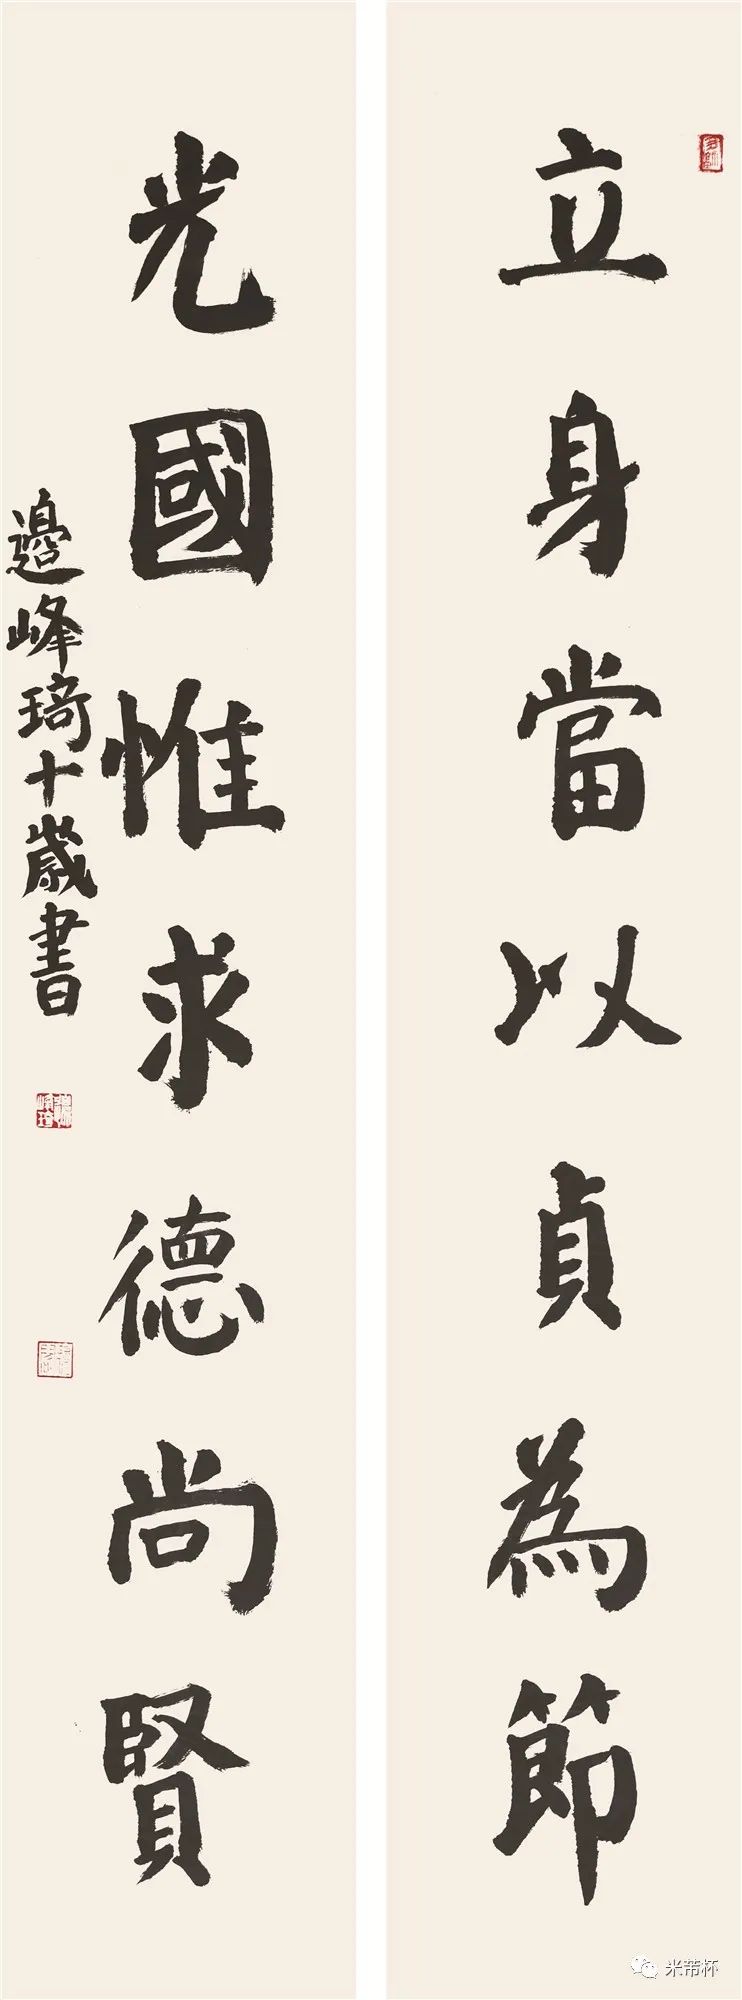 立身當以貞為節
光國惟求德尚賢
邊峰琦十歲書
米芾杯